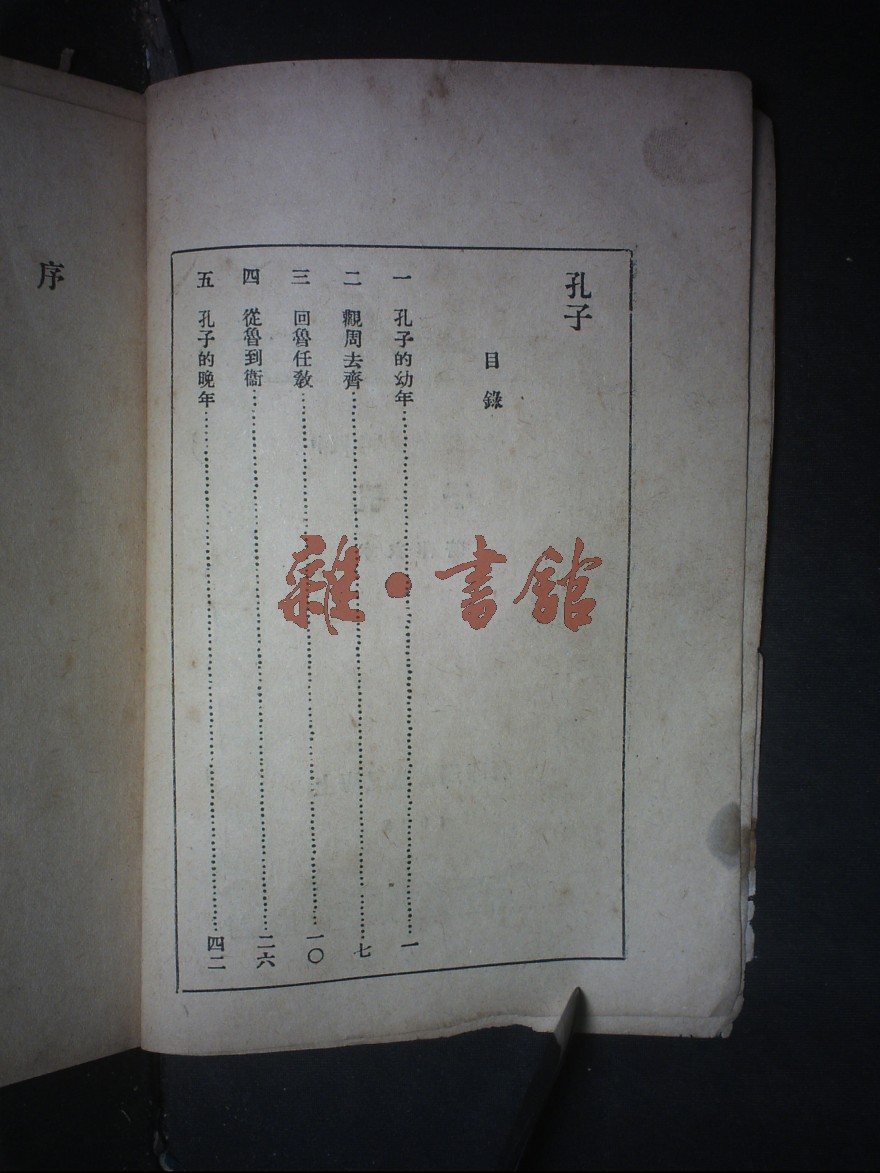 孔子
目錄
一 孔子的幼年……一
二 觀周去齊……七
三 回魯任教……一〇
四 從魯到衞……二六
五 孔子的晚年……四二
序
雜·書館